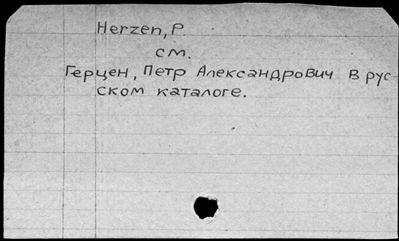 Herzen, P.
см.
Герцен, Петр Александрович в рус-
ском каталоге.